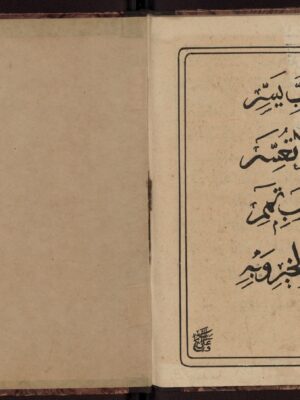 بِّ يَسِّر
تُعَسِّر
بِّ تَمِّم
لخير وَبِهِ